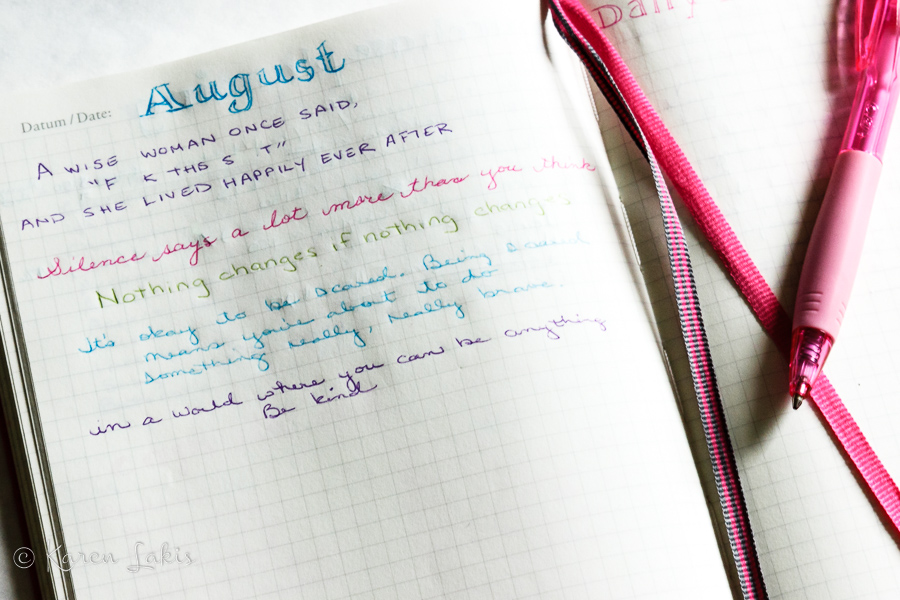 August
Datum / Date:
A WISE WOMAN ONCE SAID,
"F K THIS S T"
AND SHE LIVED HAPPILY EVER AFTER
Silence says a lot more than you think
Nothing changes if nothing changes
It's okay to be scared. Being scared
means you're about to do
something really, really brave.
in a world where you can be anything
Be kind
Daily
© Karen Lakis